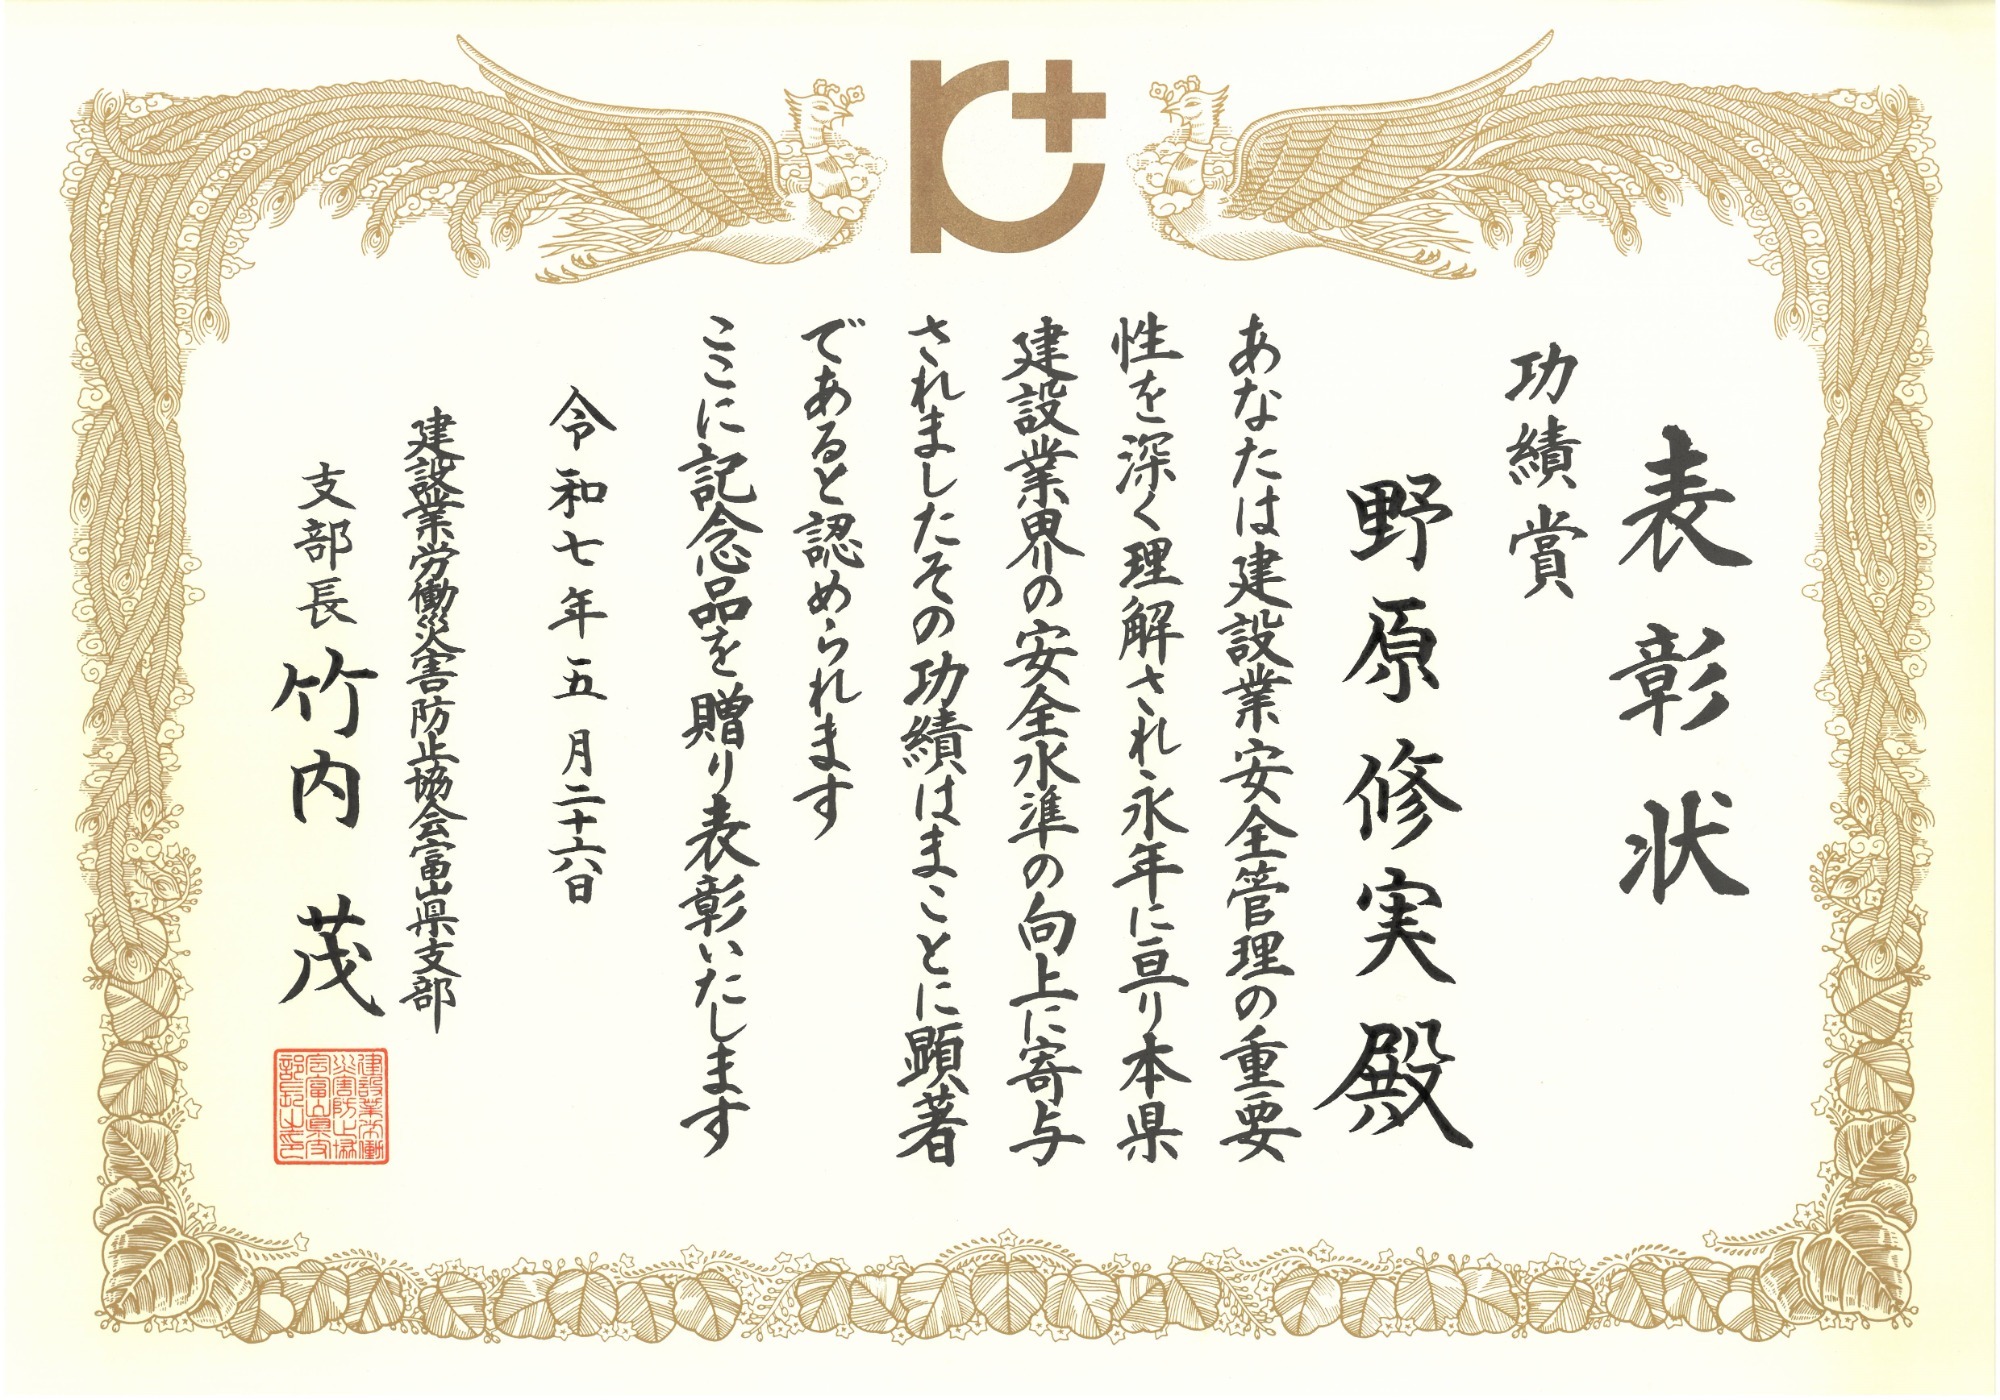 表彰状
功績賞
野原修実殿
あなたは建設業安全管理の重要
性を深く理解され永年に亘り本県
建設業界の安全水準の向上に寄与
されましたその功績はまことに顕著
であると認められます
ここに記念品を贈り表彰いたします
令和七年五月二十六日
建設業労働災害防止協会富山県支部
支部長 竹内 茂
建設業労働
災害防止協
会富山県支
部長之印